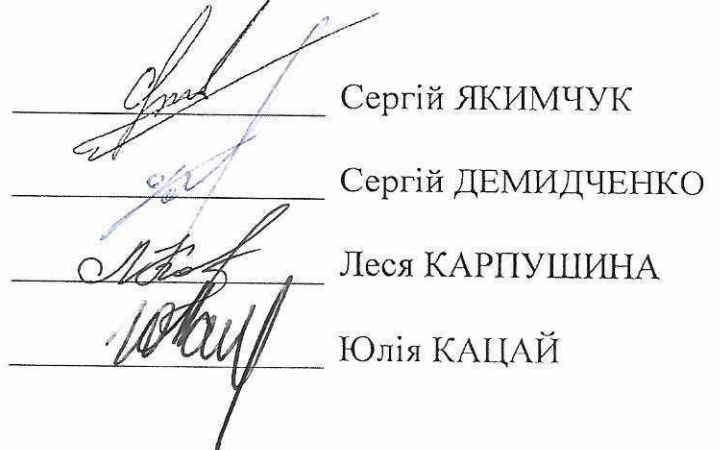 Сергій ЯКИМЧУК
Сергій ДЕМИДЧЕНКО
Леся КАРПУШИНА
Юлія КАЦАЙ